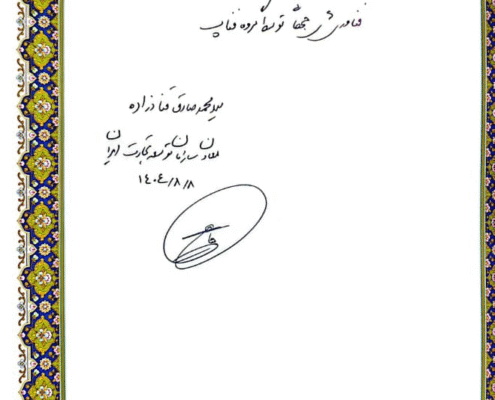 فناوری توسط گروه فناپ
سید محمد صادق قنادزاده
معاون سازمان توسعه تجارت ایران
۱۴۰۴/۸/۸